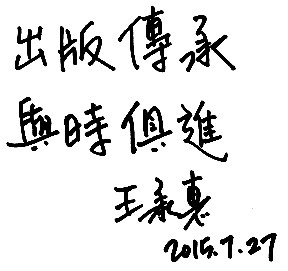 出版傳承
與時俱進
王承惠
2015.7.27